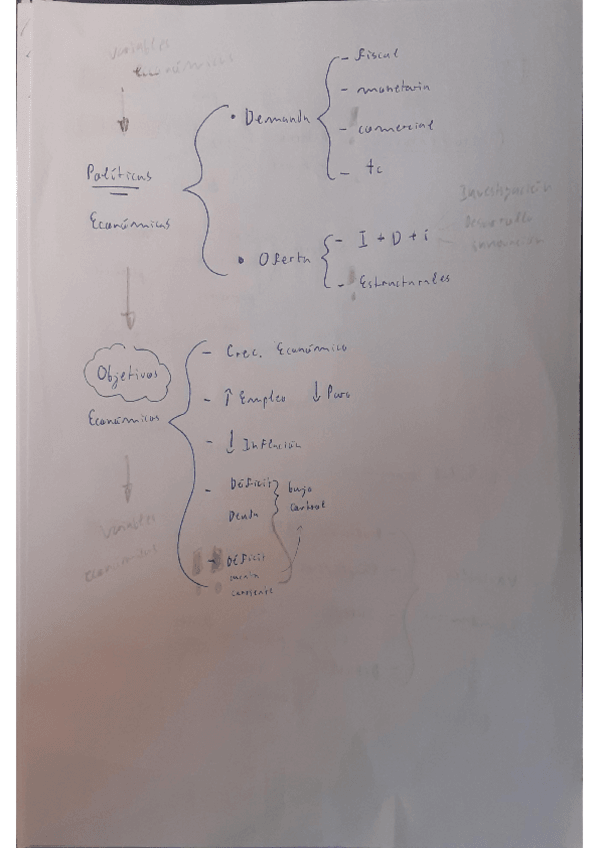 Variables
económicas
Políticas
Económicas
• Demanda
- fiscal
- monetaria
- comercial
- tc
• Oferta
- I + D + i
Investigación
Desarrollo
innovación
- Estructurales
Objetivos
Económicos
- Crec. Económico
- ↑ Empleo ↓ Paro
- ↓ Inflación
- Déficit
Deuda
bajo
control
- Déficit
cuenta
corriente
Variables
económicas